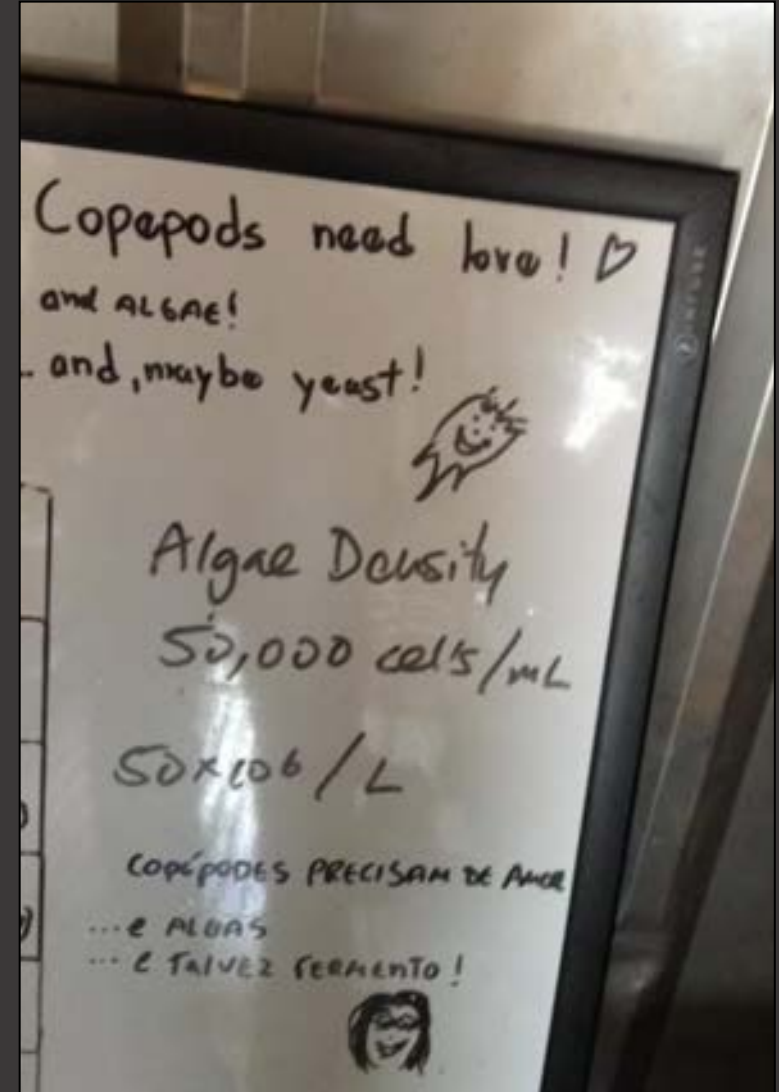 Copepods need love! ♡
and ALGAE!
and, maybe yeast!
Algae Density
50,000 cells/mL
50x10⁶/L
COPÉPODES PRECISAM DE AMOR
...e ALGAS
... e TALVEZ FERMENTO!